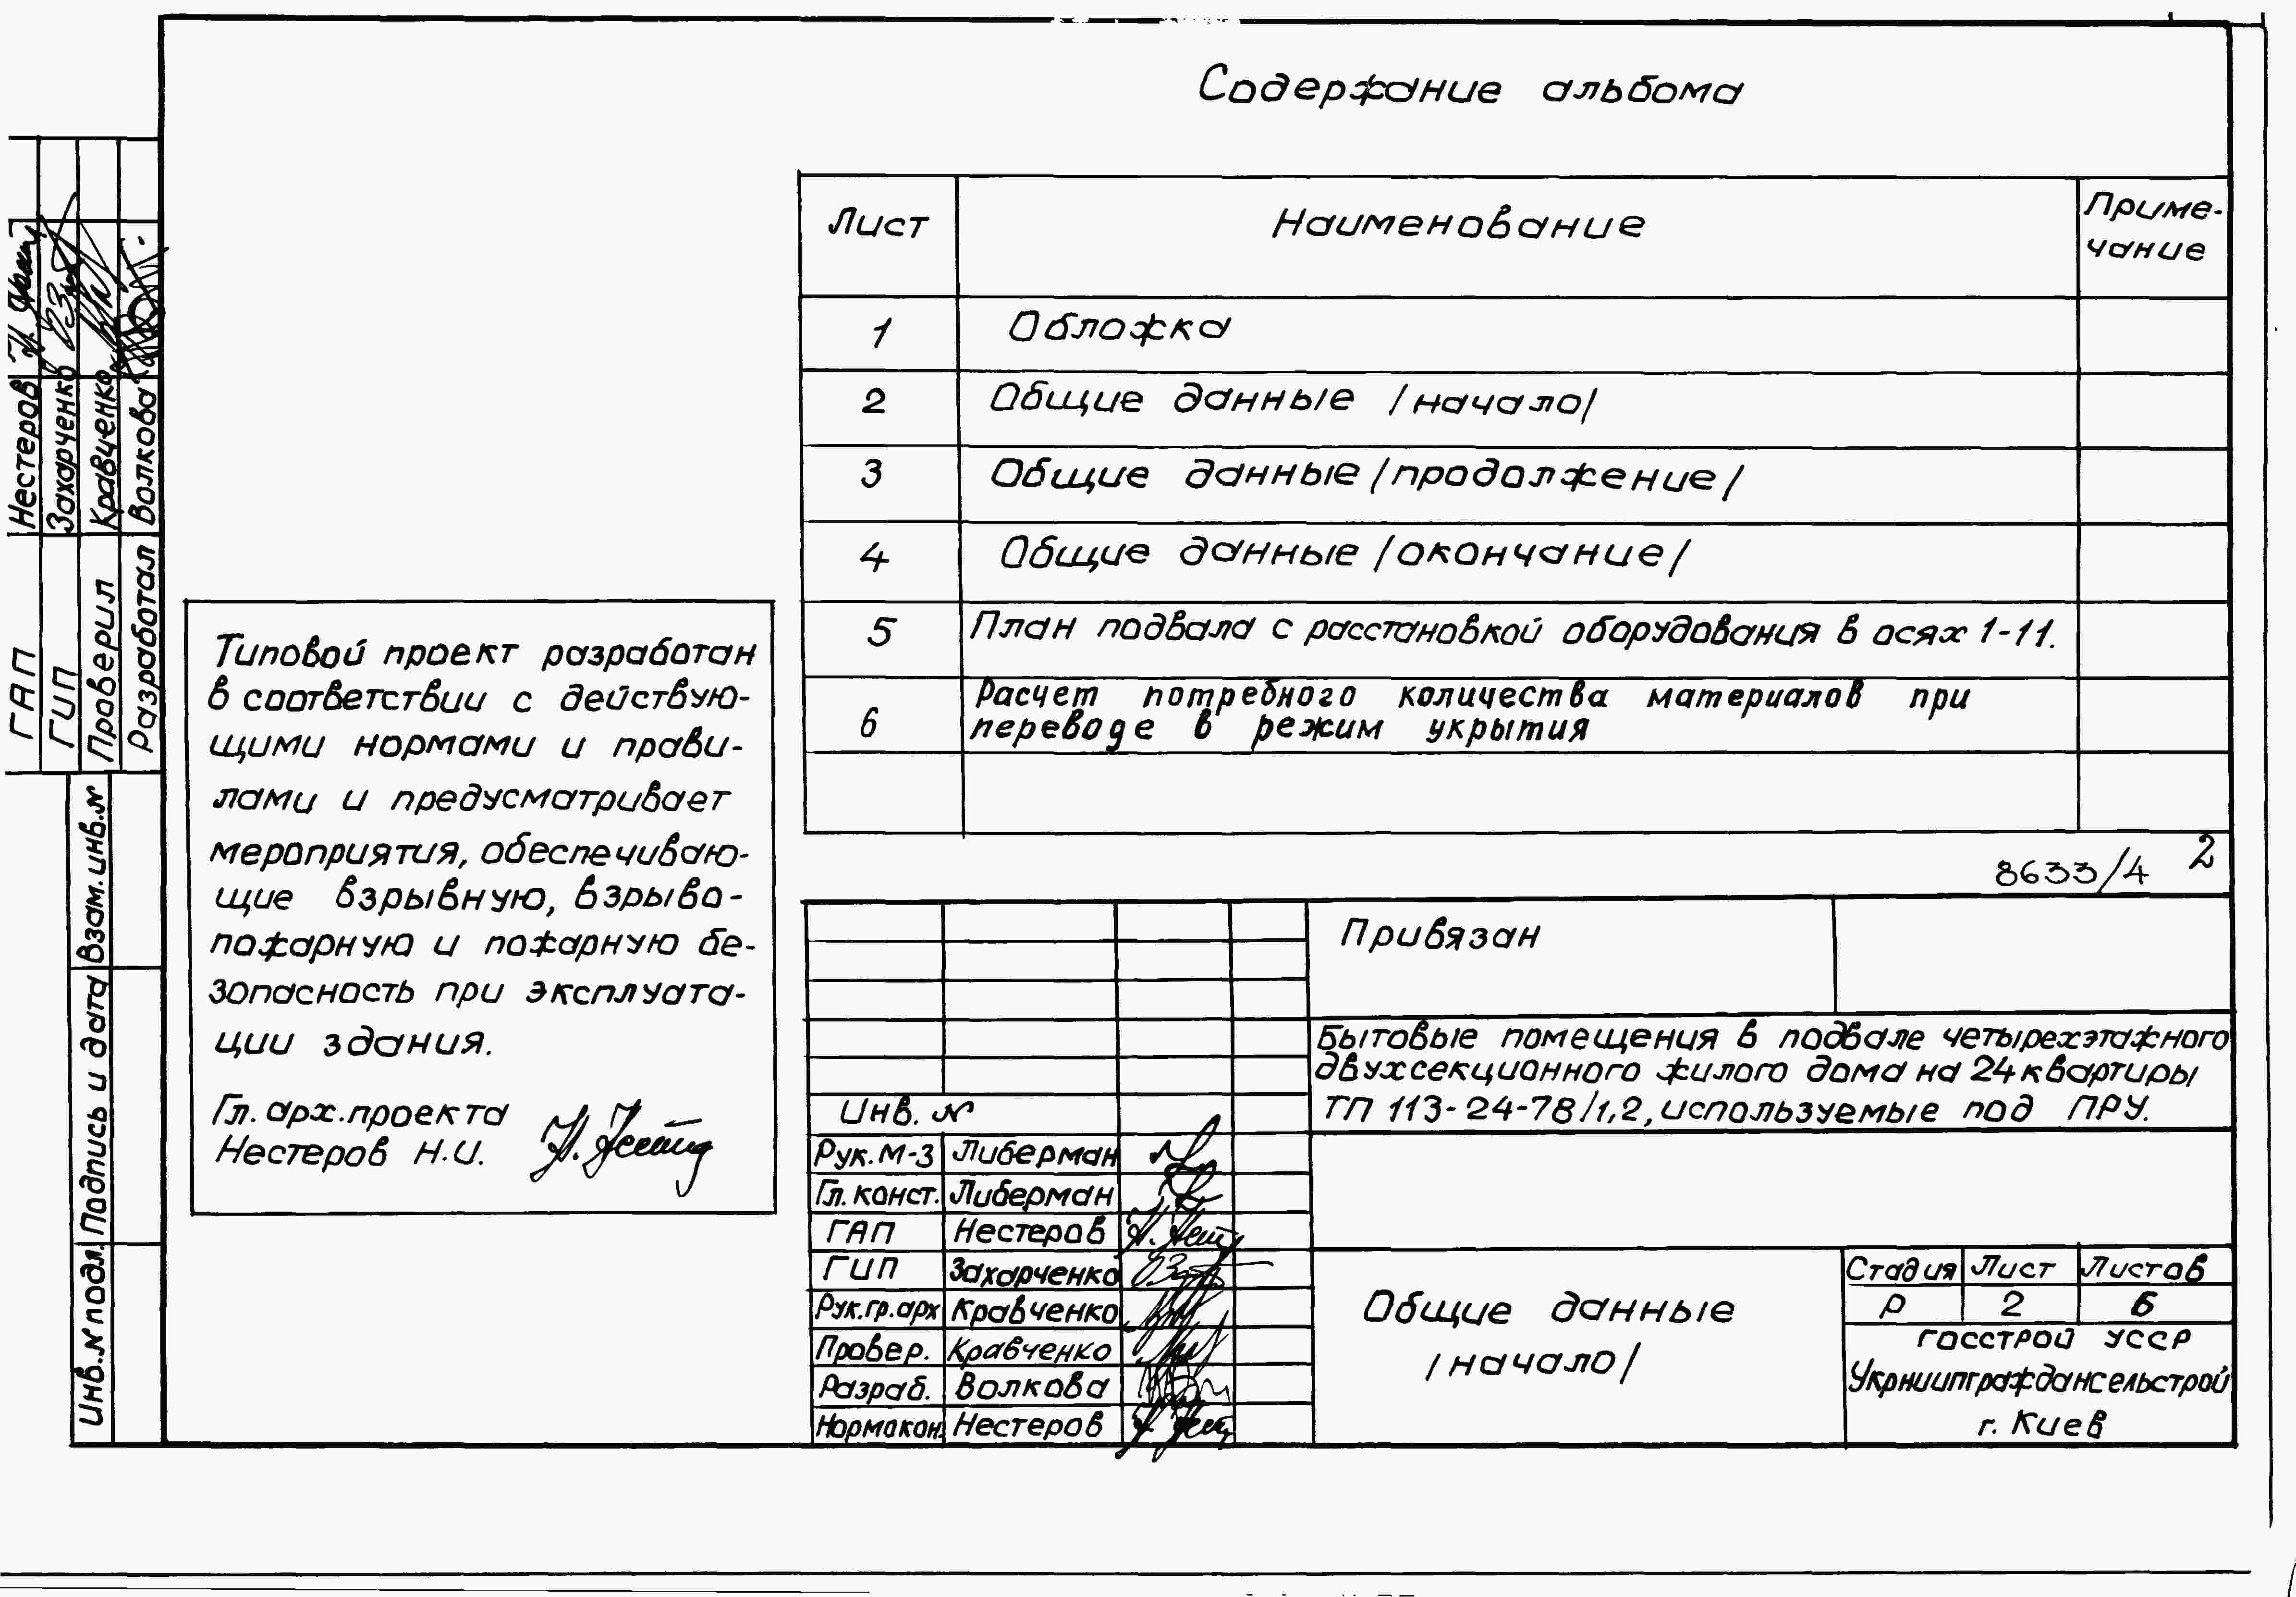 Содержание альбома
Лист Наименование Приме-
чание
1 Обложка
2 Общие данные /начало/
3 Общие данные /продолжение/
4 Общие данные /окончание/
5 План подвала с расстановкой оборудования в осях 1-11.
6 Расчет потребного количества материалов при
переводе в режим укрытия
8633/4 2
Типовой проект разработан
в соответствии с действую-
щими нормами и прави-
лами и предусматривает
мероприятия, обеспечиваю-
щие взрывную, взрыво-
пожарную и пожарную бе-
зопасность при эксплуата-
ции здания.
Гл. арх. проекта
Нестеров Н.И.
ГАП Нестеров
ГИП Захарченко
Проверил Кравченко
Разработал Волкова
Взам. инв. №
Подпись и дата
Инв. № подл.
Привязан
Инв. №
Бытовые помещения в подвале четырехэтажного
двухсекционного жилого дома на 24 квартиры
ТП 113-24-78/1,2, используемые под ПРУ.
Рук. М-3 Либерман
Гл. конст. Либерман
ГАП Нестеров
ГИП Захарченко
Рук. гр. арх Кравченко
Провер. Кравченко
Разраб. Волкова
Нормокон. Нестеров
Общие данные
/начало/
Стадия Лист Листов
Р 2 6
Госстрой УССР
Укрниипграждансельстрой
г. Киев